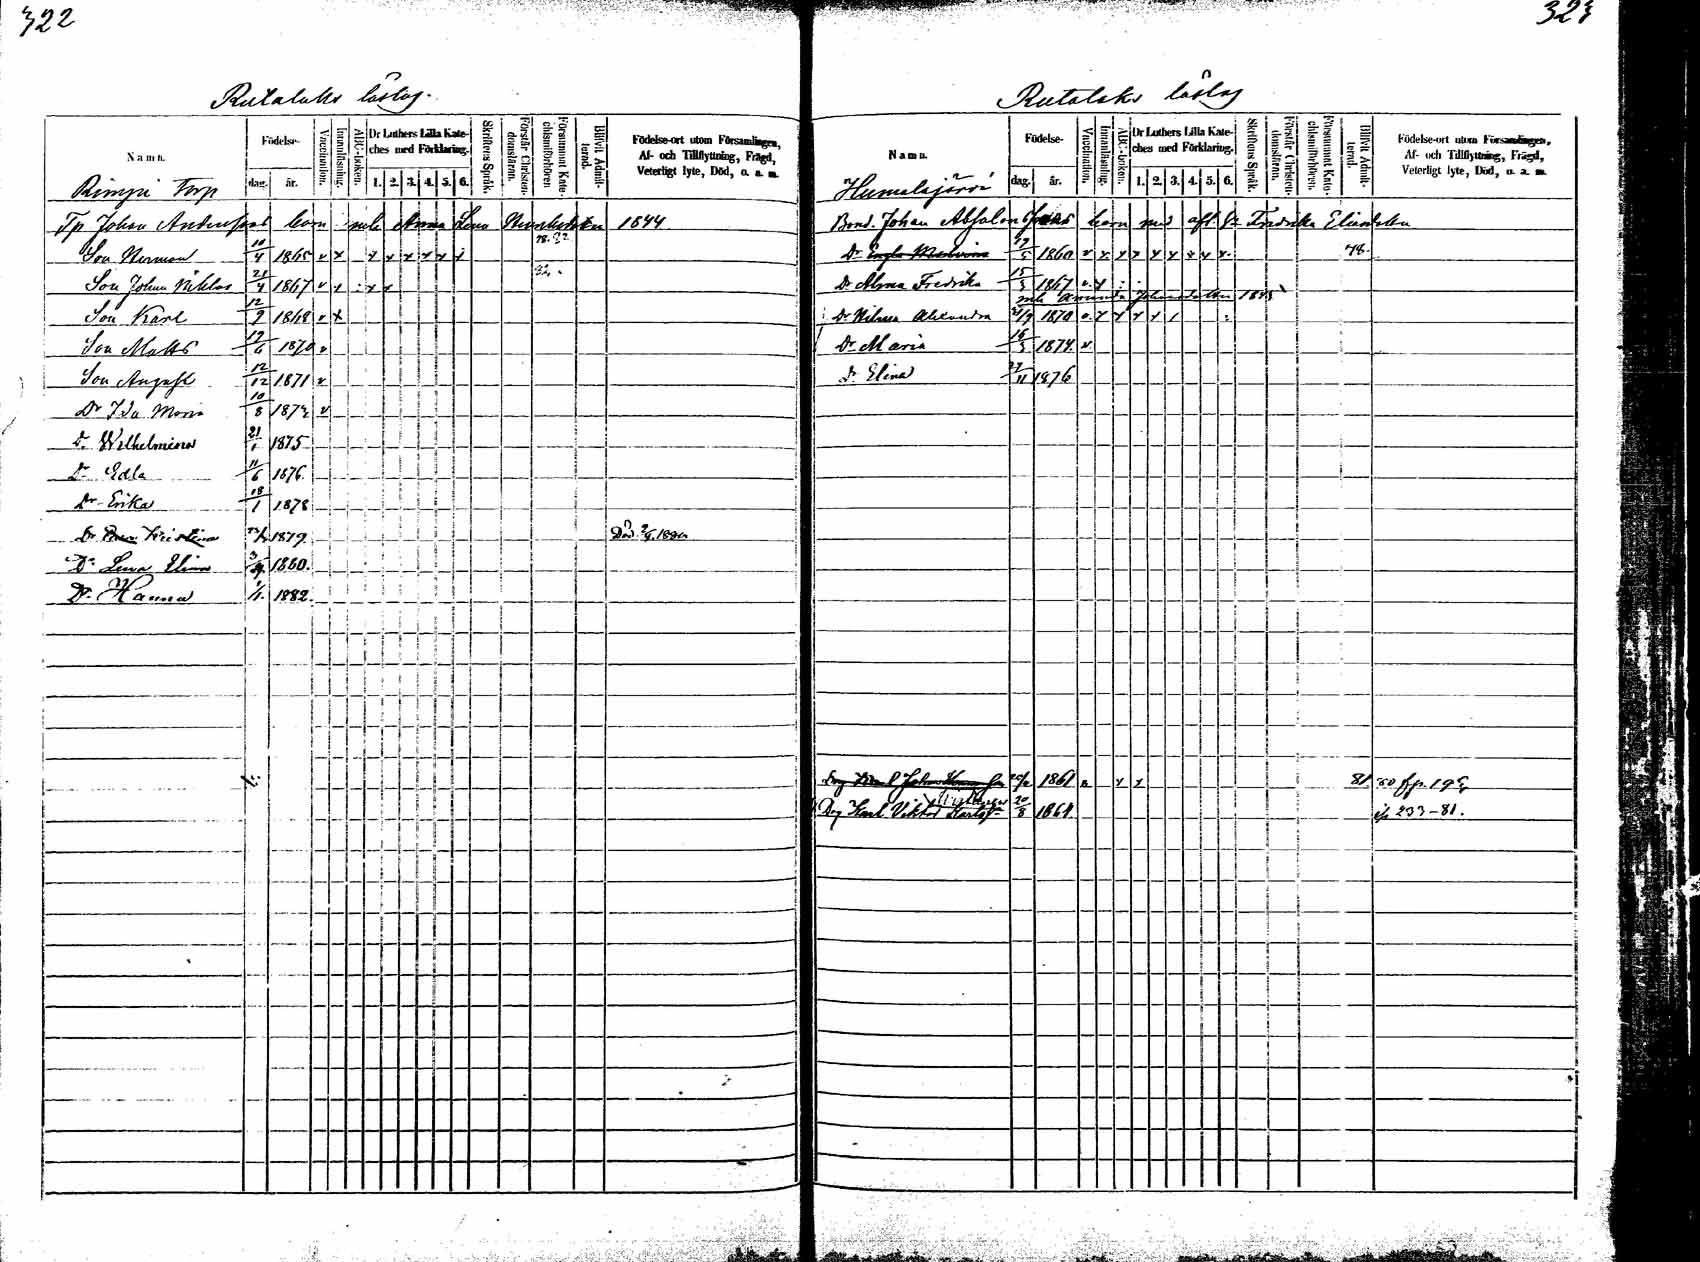 322
Rutalaks läslag.
Namn.
Födelse-
dag. år.
Vaccination.
Innanläsning.
ABC-boken.
Dr Luthers Lilla Kate-
ches med Förklaring.
1. 2. 3. 4. 5. 6.
Skriftens Språk.
Förstår Christen-
domsläran.
Försummat Kate-
chismiförhören
Blifvit Admit-
terad.
Födelse-ort utom Församlingen,
Af- och Tillflyttning, Frägd,
Veterligt lyte, Död, o. a. m.
Torp
Tp Johan Anderssons barn med Anna Lena 1844
Son Herman 10/4 1865 v x x x x x x x 78. 82
Son Johan Niklas 21/4 1867 v x x x 82.
Son Karl 12/9 1868 v x
Son Matts 17/6 1870 v
Son August 12/12 1871 v
Dr Ida Maria 10/8 1873 v
Dr Wilhelmina 21/1 1875
Dr Edla 11/6 1876.
Dr Erika 18/1 1878
Dr Kristina 1879. Död
Dr Lena Elina 1880.
Dr Hanna 1/1. 1882.
323
Rutalaks läslag
Namn.
Födelse-
dag. år.
Vaccination.
Innanläsning.
ABC-boken.
Dr Luthers Lilla Kate-
ches med Förklaring.
1. 2. 3. 4. 5. 6.
Skriftens Språk.
Förstår Christen-
domsläran.
Försummat Kate-
chismiförhören
Blifvit Admit-
terad.
Födelse-ort utom Församlingen,
Af- och Tillflyttning, Frägd,
Veterligt lyte, Död, o. a. m.
Humalajärvi
Bond. Johan Absalon barn med afl. Fredrika
Dr 1860 v x x x x x x x x 78.
Dr Alma Fredrika 15/3 1867 v x
med Amanda Johansdotter 1845
Dr Hilma Alexandra 21/9 1870 v x x x x
Dr Maria 16/3 1874. v
Dr Elina 27/11 1876
Dng Johan 1861 81
Dng Karl Viktor Karlsson 20/8 1861 233-81.